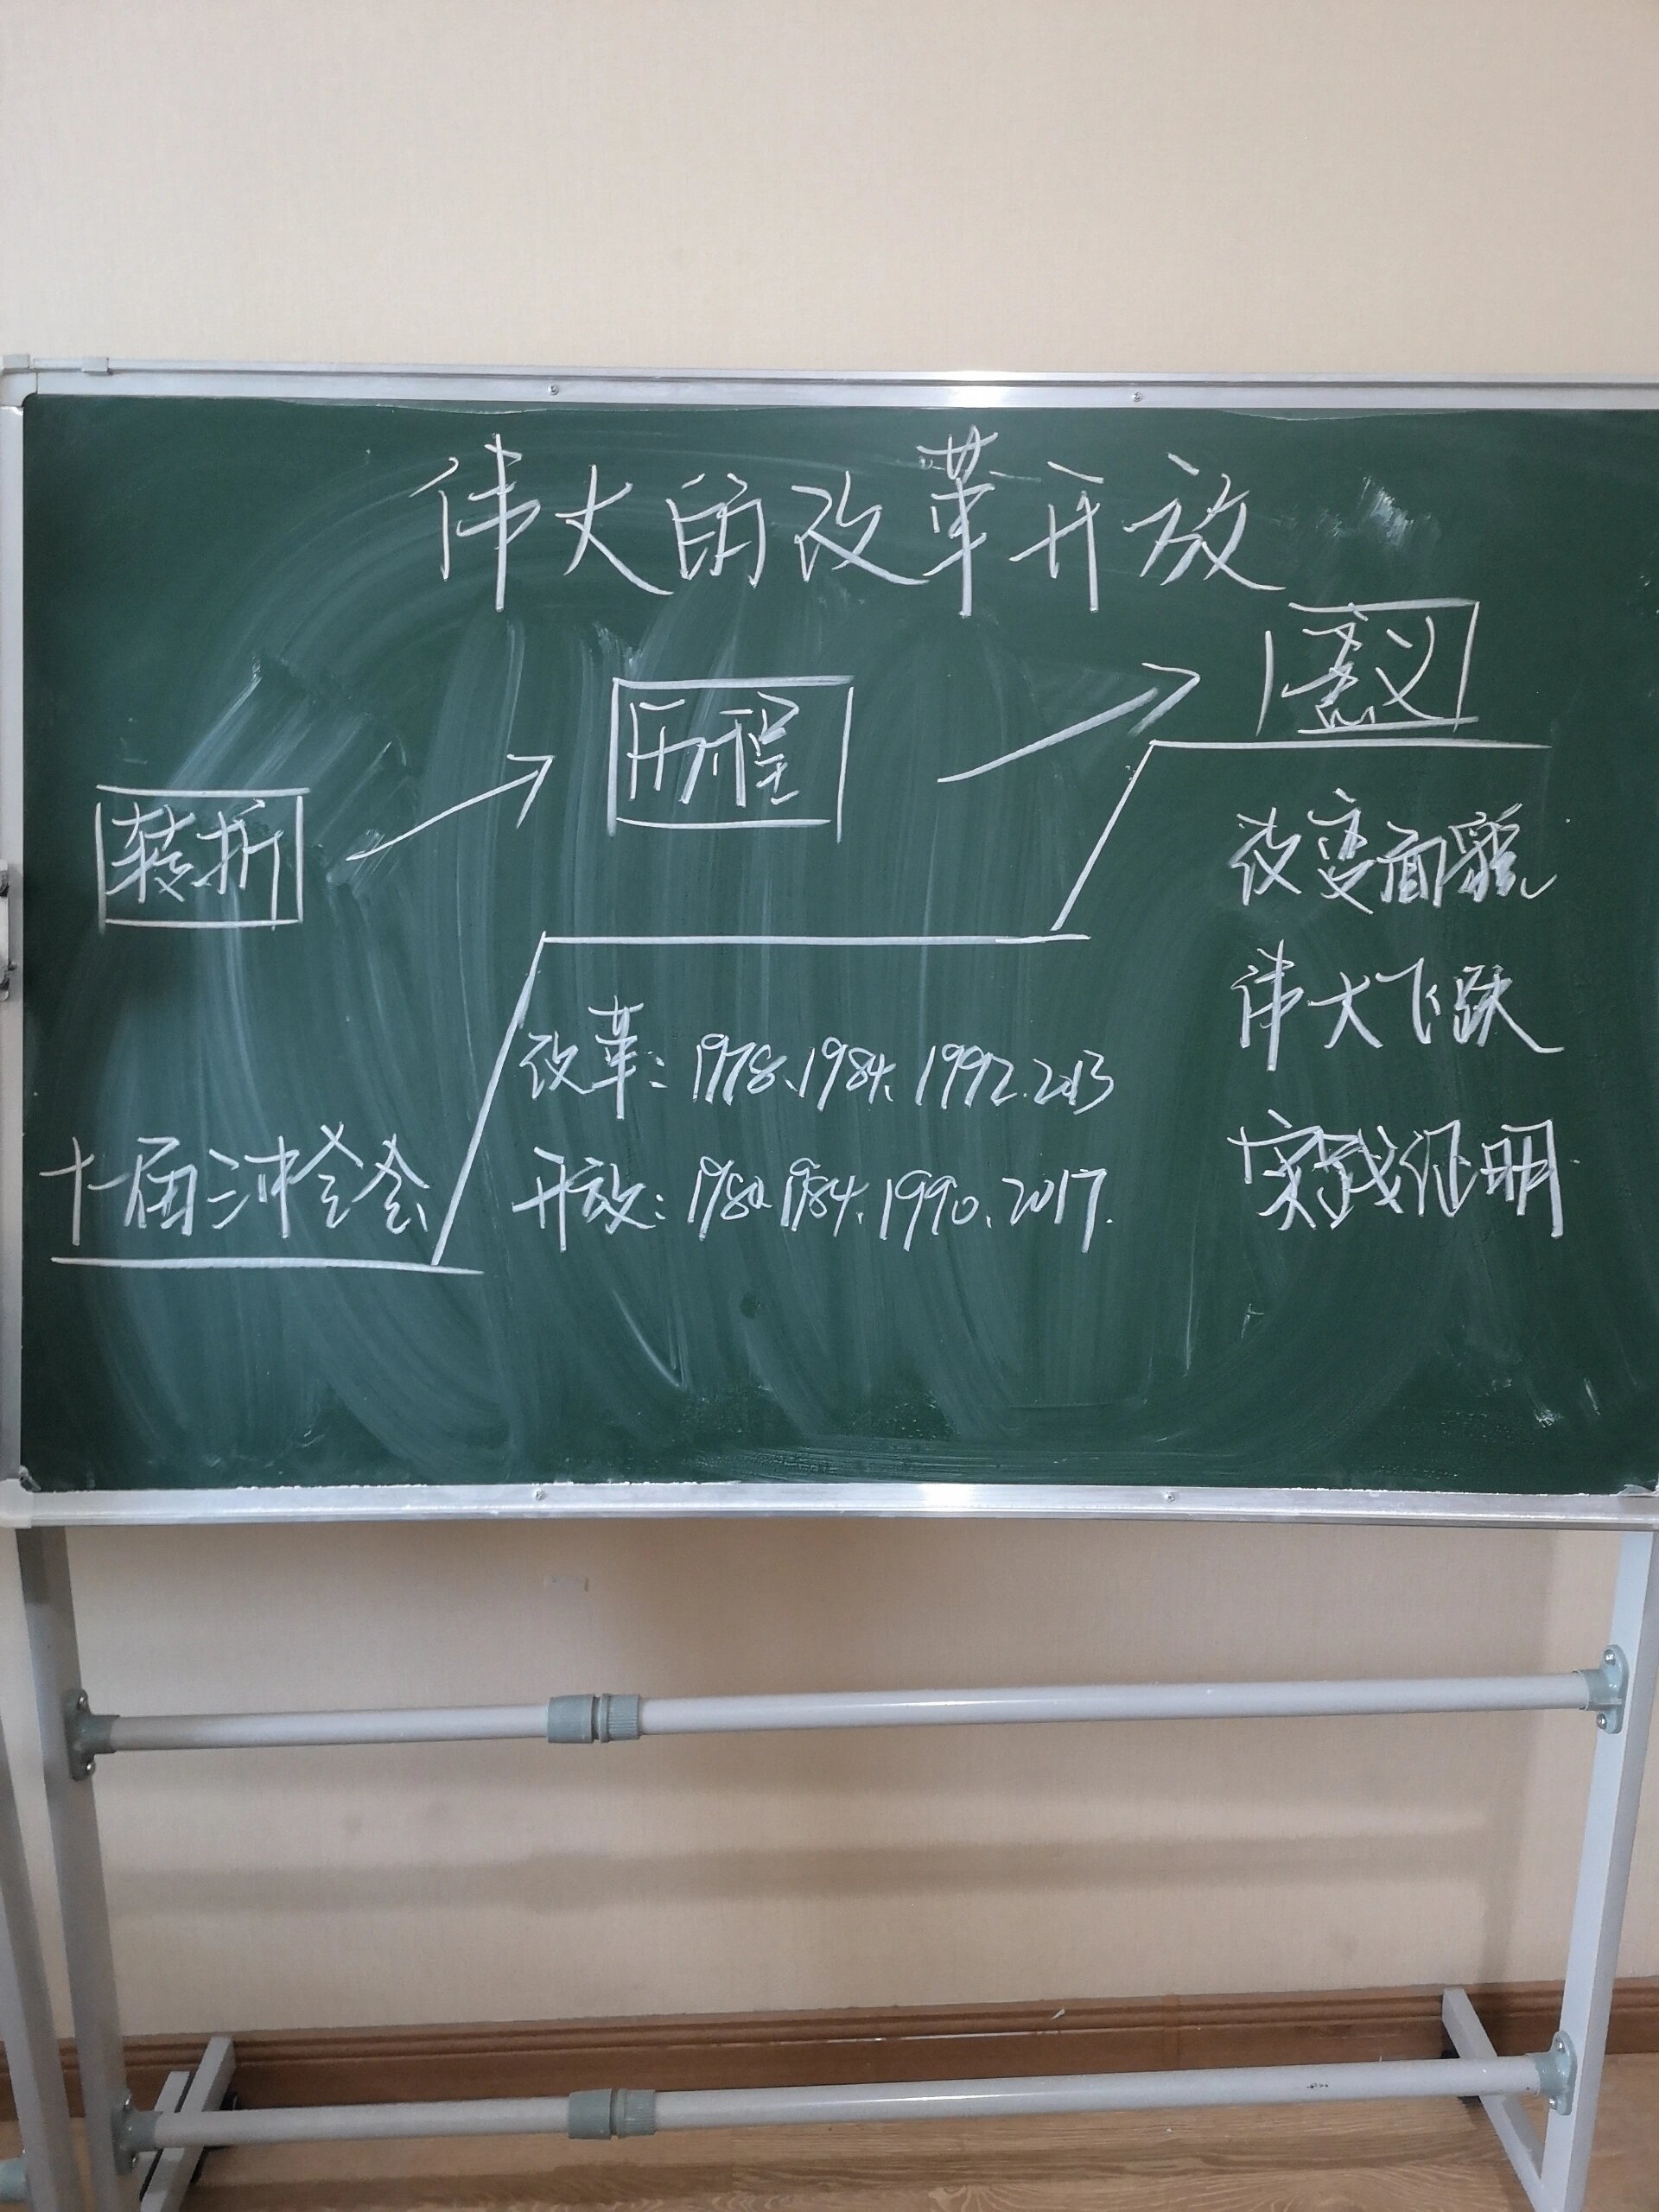 伟大的改革开放
转折
历程
意义
十一届三中全会
改革：1978、1984、1992、2013
开放：1980、1984、1990、2017.
改变面貌
伟大飞跃
实践证明